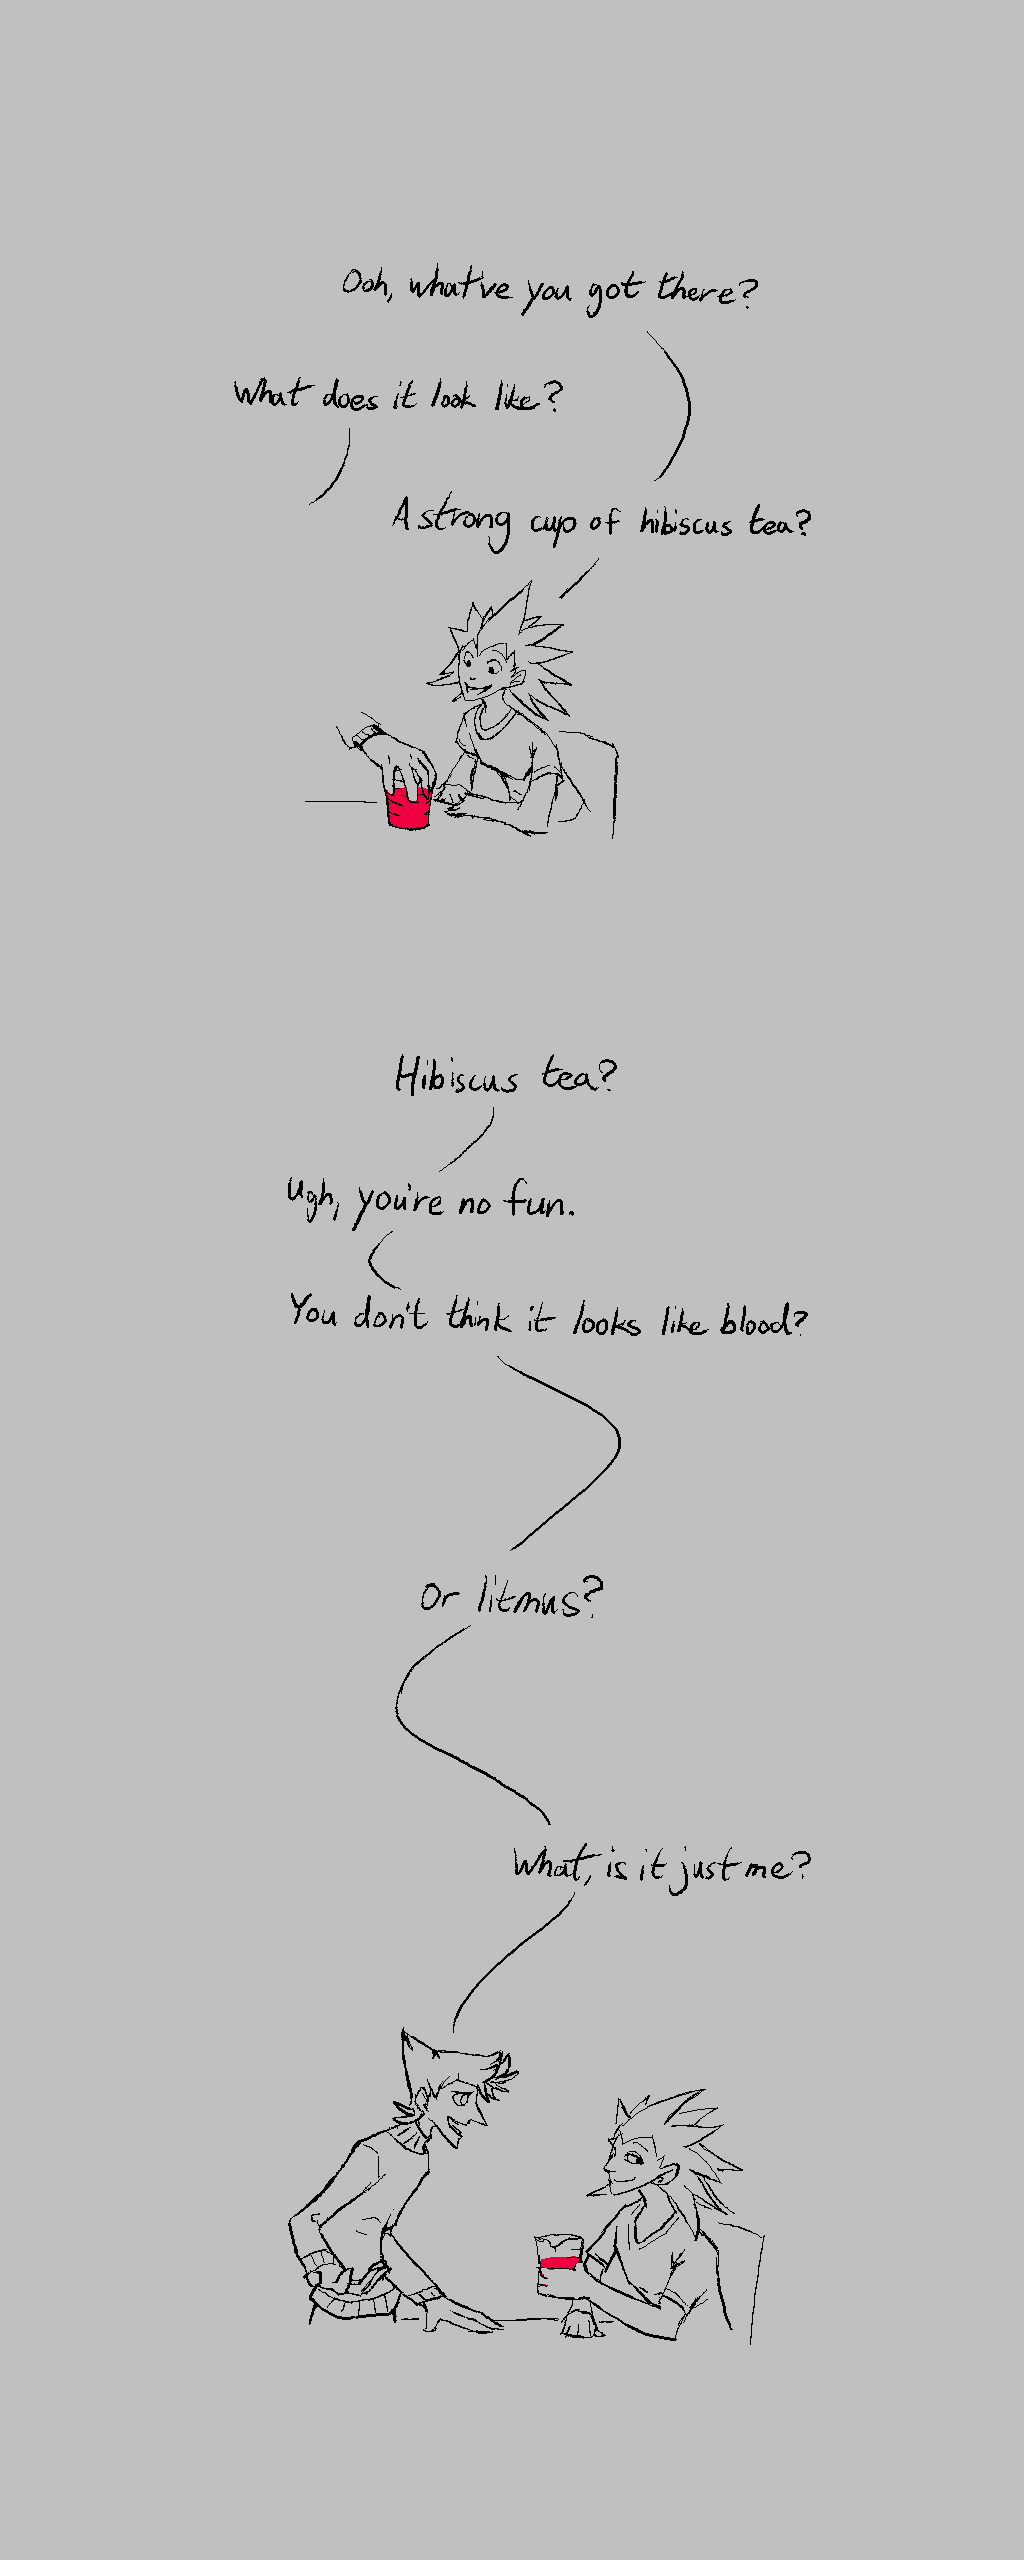 Ooh, what've you got there?
What does it look like?
A strong cup of hibiscus tea?
Hibiscus tea?
Ugh, you're no fun.
You don't think it looks like blood?
Or litmus?
What, is it just me?